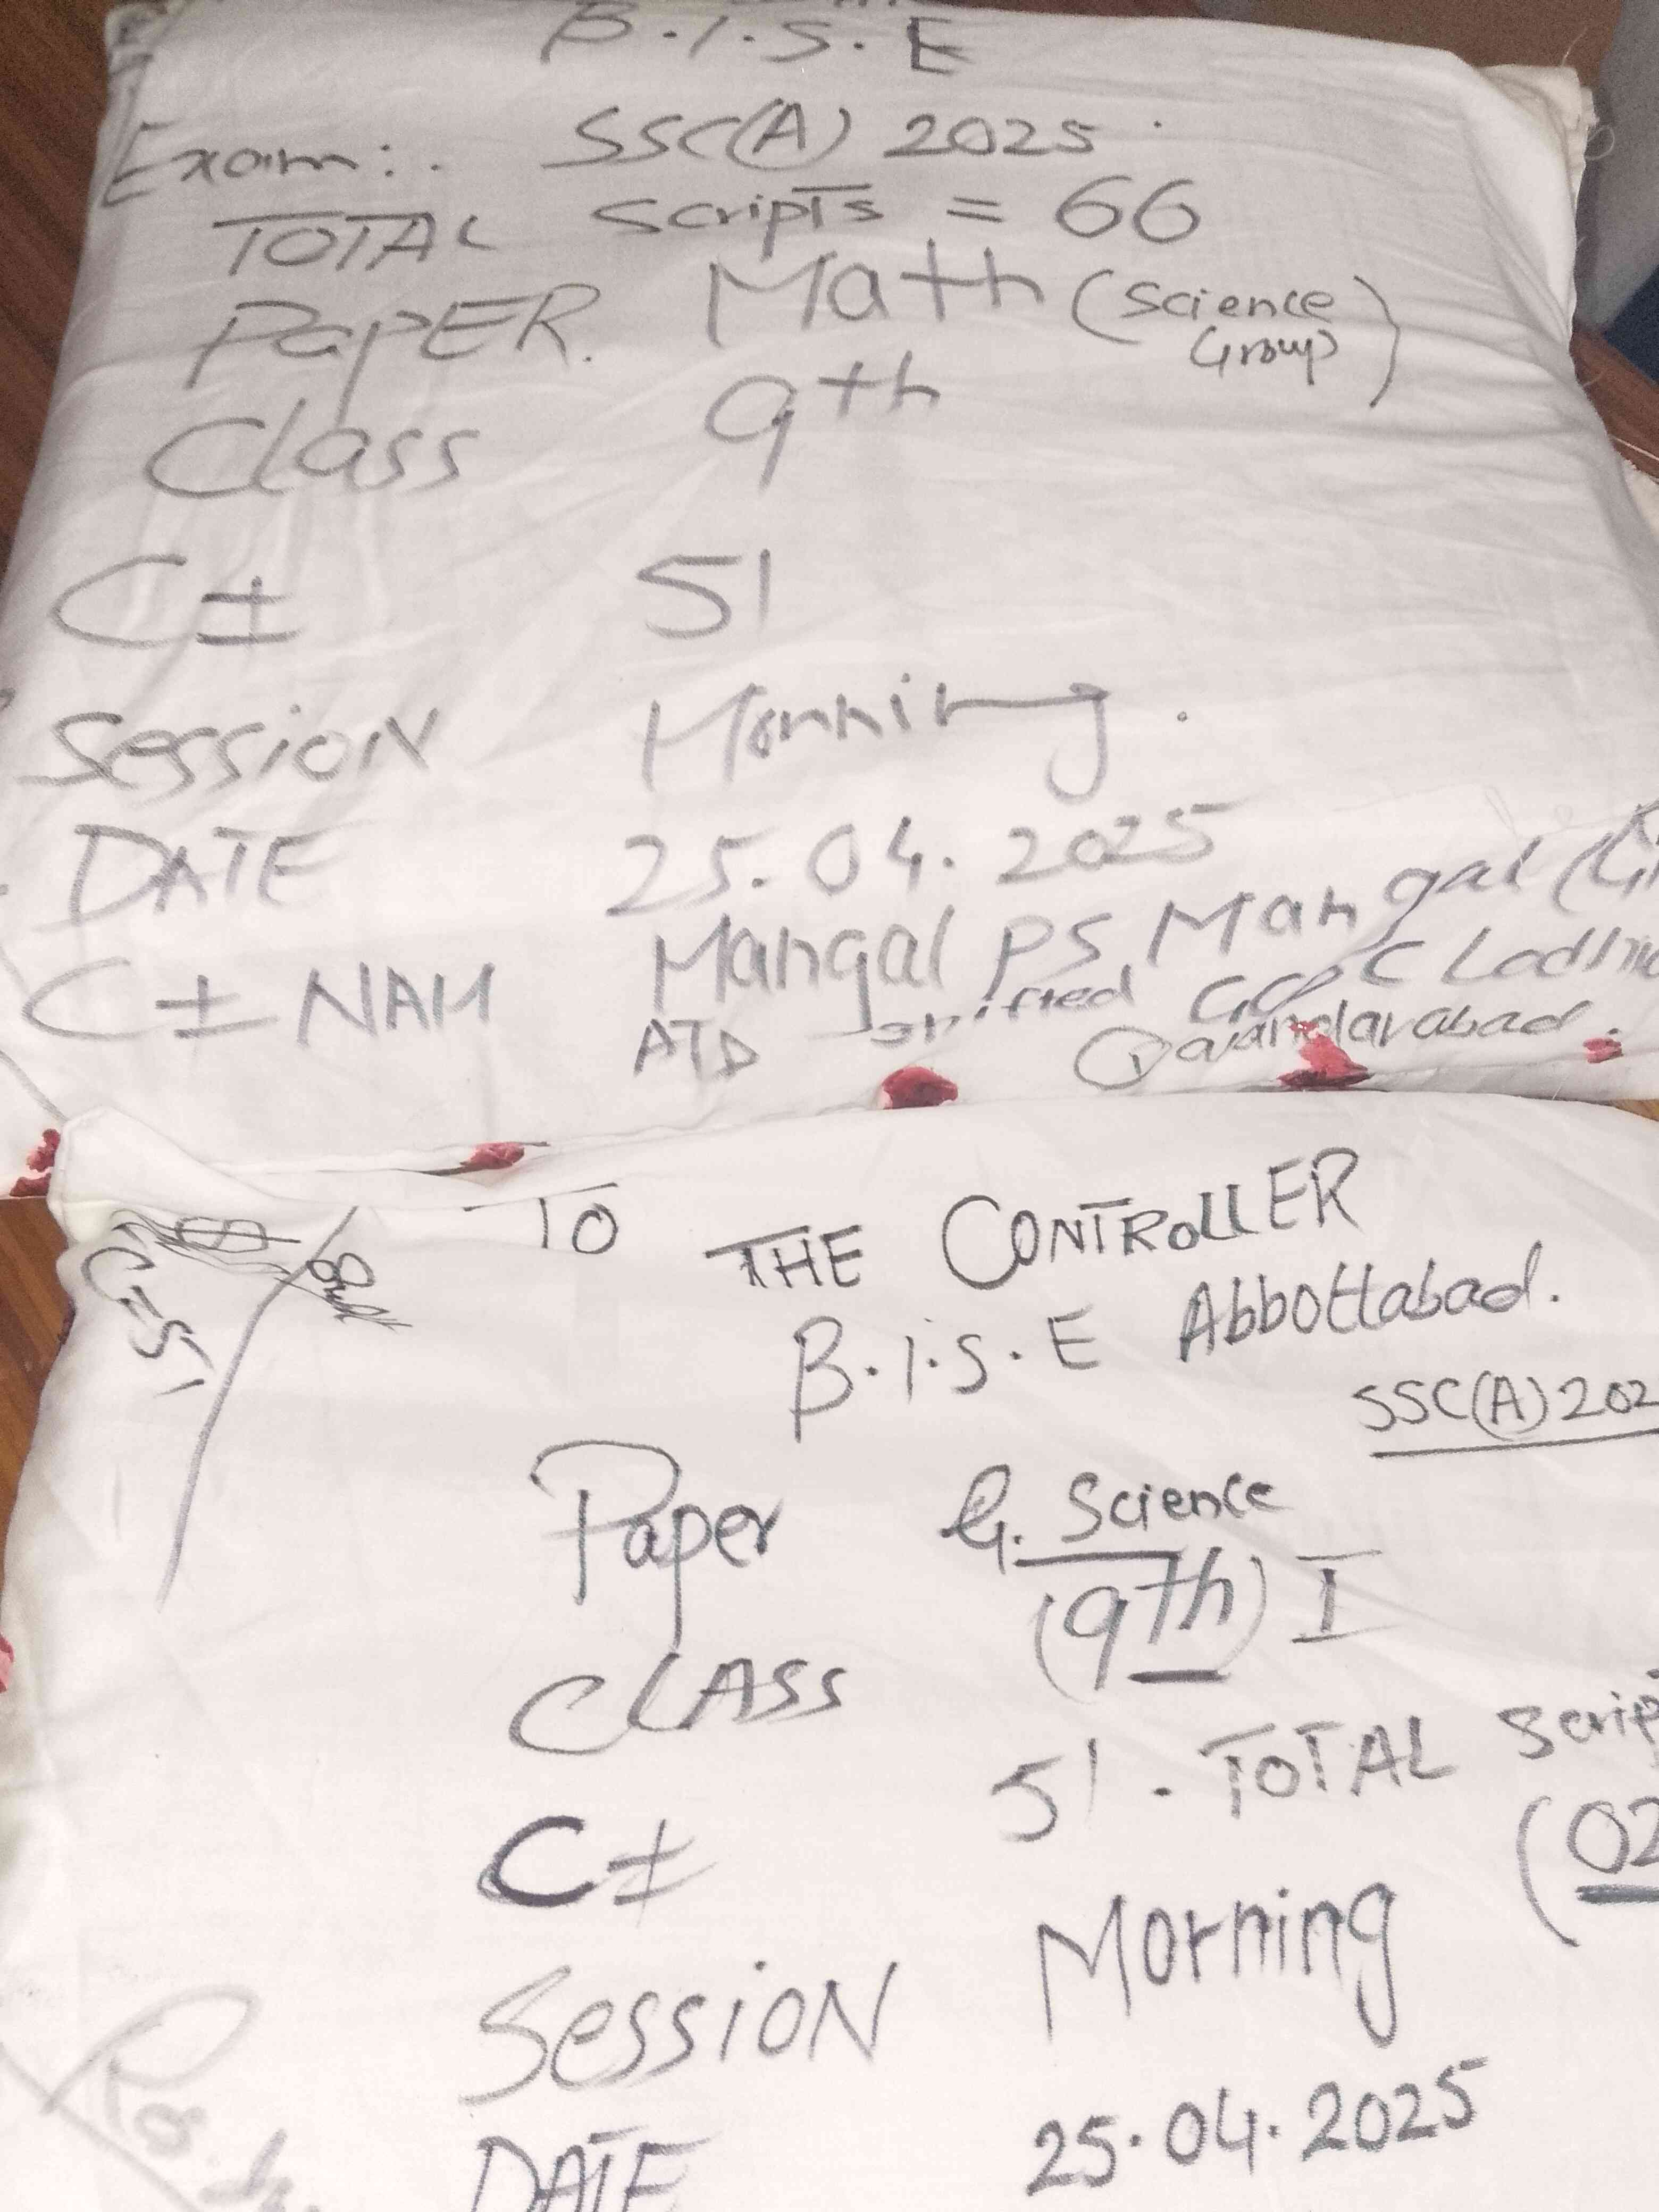 B.I.S.E
Exam:. SSC(A) 2025
TOTAL Scripts = 66
PaPER. Math (Science Group)
Class 9th
C± 51
SESSiON Morning.
DATE 25.04.2025
C± NAM Mangal PS Mangal
ATD
Qalandarabad.
TO
THE CONTROLLER
B.I.S.E Abbottabad.
SSC(A) 202
Paper G. Science
(9th) I
CLASS
C± 51 - TOTAL Scrip
(02
SESSiON Morning
DATE 25.04.2025
C=51